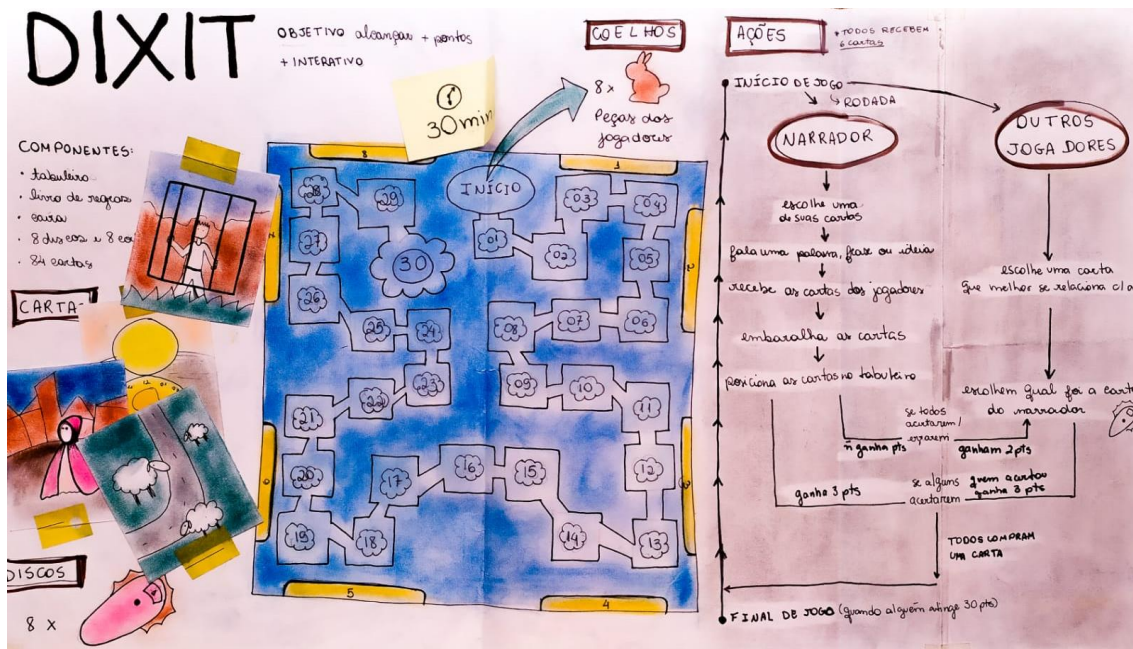 DIXIT
OBJETIVO alcançar + pontos
+ INTERATIVO
30min
COELHOS
8 x
Peças dos
jogadores
COMPONENTES:
• tabuleiro
• livro de regras
• caixa
• 8 discos e 8
• 84 cartas
CARTA
DISCOS
8 x
INÍCIO
01
02
03
04
05
06
07
08
09
10
11
12
13
14
15
16
17
18
19
20
21
22
23
24
25
26
27
28
29
30
1
2
3
4
5
6
7
8
AÇÕES
* TODOS RECEBEM
6 cartas
INÍCIO DE JOGO
RODADA
NARRADOR
escolhe uma
de suas cartas
fala uma palavra, frase ou ideia
recebe as cartas dos jogadores
embaralha as cartas
posiciona as cartas no tabuleiro
OUTROS
JOGADORES
escolhe uma carta
que melhor se relaciona c/a
escolhem qual foi a carta
do narrador
se todos
acertarem/
errarem
ñ ganha pts
ganham 2 pts
ganha 3 pts
se alguns
acertarem
quem acertou
ganha 3 pts
TODOS COMPRAM
UMA CARTA
FINAL DE JOGO (quando alguém atinge 30 pts)